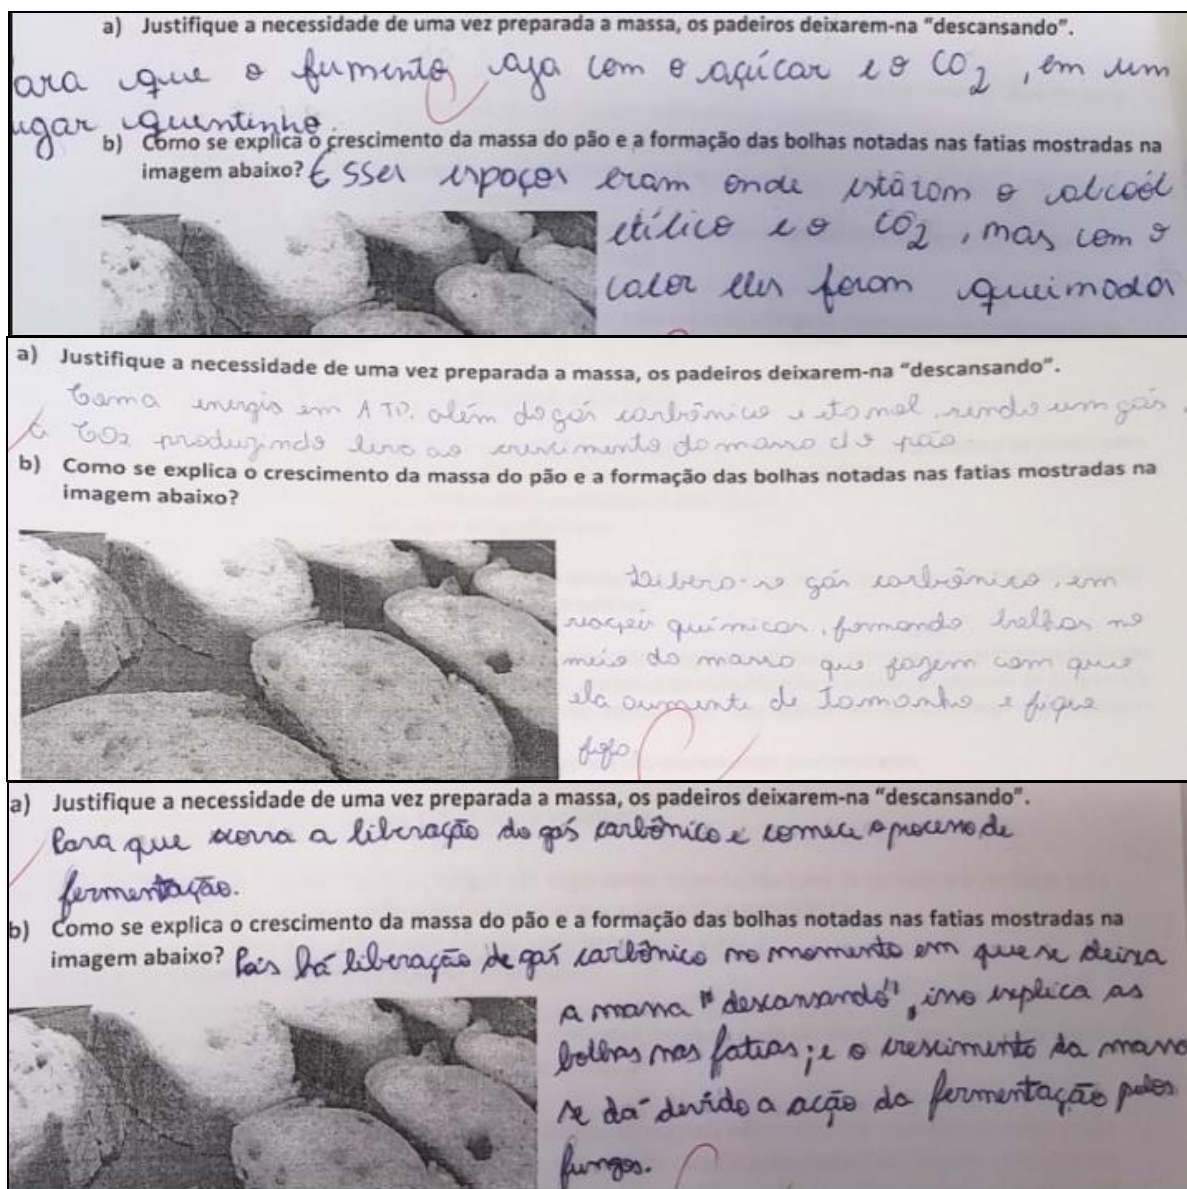 a) Justifique a necessidade de uma vez preparada a massa, os padeiros deixarem-na “descansando”.
ara que o fumento aja com o açúcar e o CO2, em um
ugar quentinho
b) Como se explica o crescimento da massa do pão e a formação das bolhas notadas nas fatias mostradas na
imagem abaixo? Esses espaços eram onde estâram o alcoól
etílico e o CO2, mas com o
calor eles foram queimados
a) Justifique a necessidade de uma vez preparada a massa, os padeiros deixarem-na “descansando”.
energia em ATP. além do gás carbônico e etanol, sendo um gás
CO2 produzindo leva ao crescimento da massa do pão
b) Como se explica o crescimento da massa do pão e a formação das bolhas notadas nas fatias mostradas na
imagem abaixo?
Libera-se gás carbônico, em
reações químicas, formando bolhas no
meio da massa que fazem com que
ela aumente de tamanho e fique
fofo
a) Justifique a necessidade de uma vez preparada a massa, os padeiros deixarem-na “descansando”.
Para que ocorra a liberação do gás carbônico e comece o processo de
fermentação.
b) Como se explica o crescimento da massa do pão e a formação das bolhas notadas nas fatias mostradas na
imagem abaixo? Pois há liberação de gás carbônico no momento em que se deixa
a massa "descansando", isso explica as
bolhas nas fatias; e o crescimento da massa
se dá devido a acção da fermentação pelos
fungos.